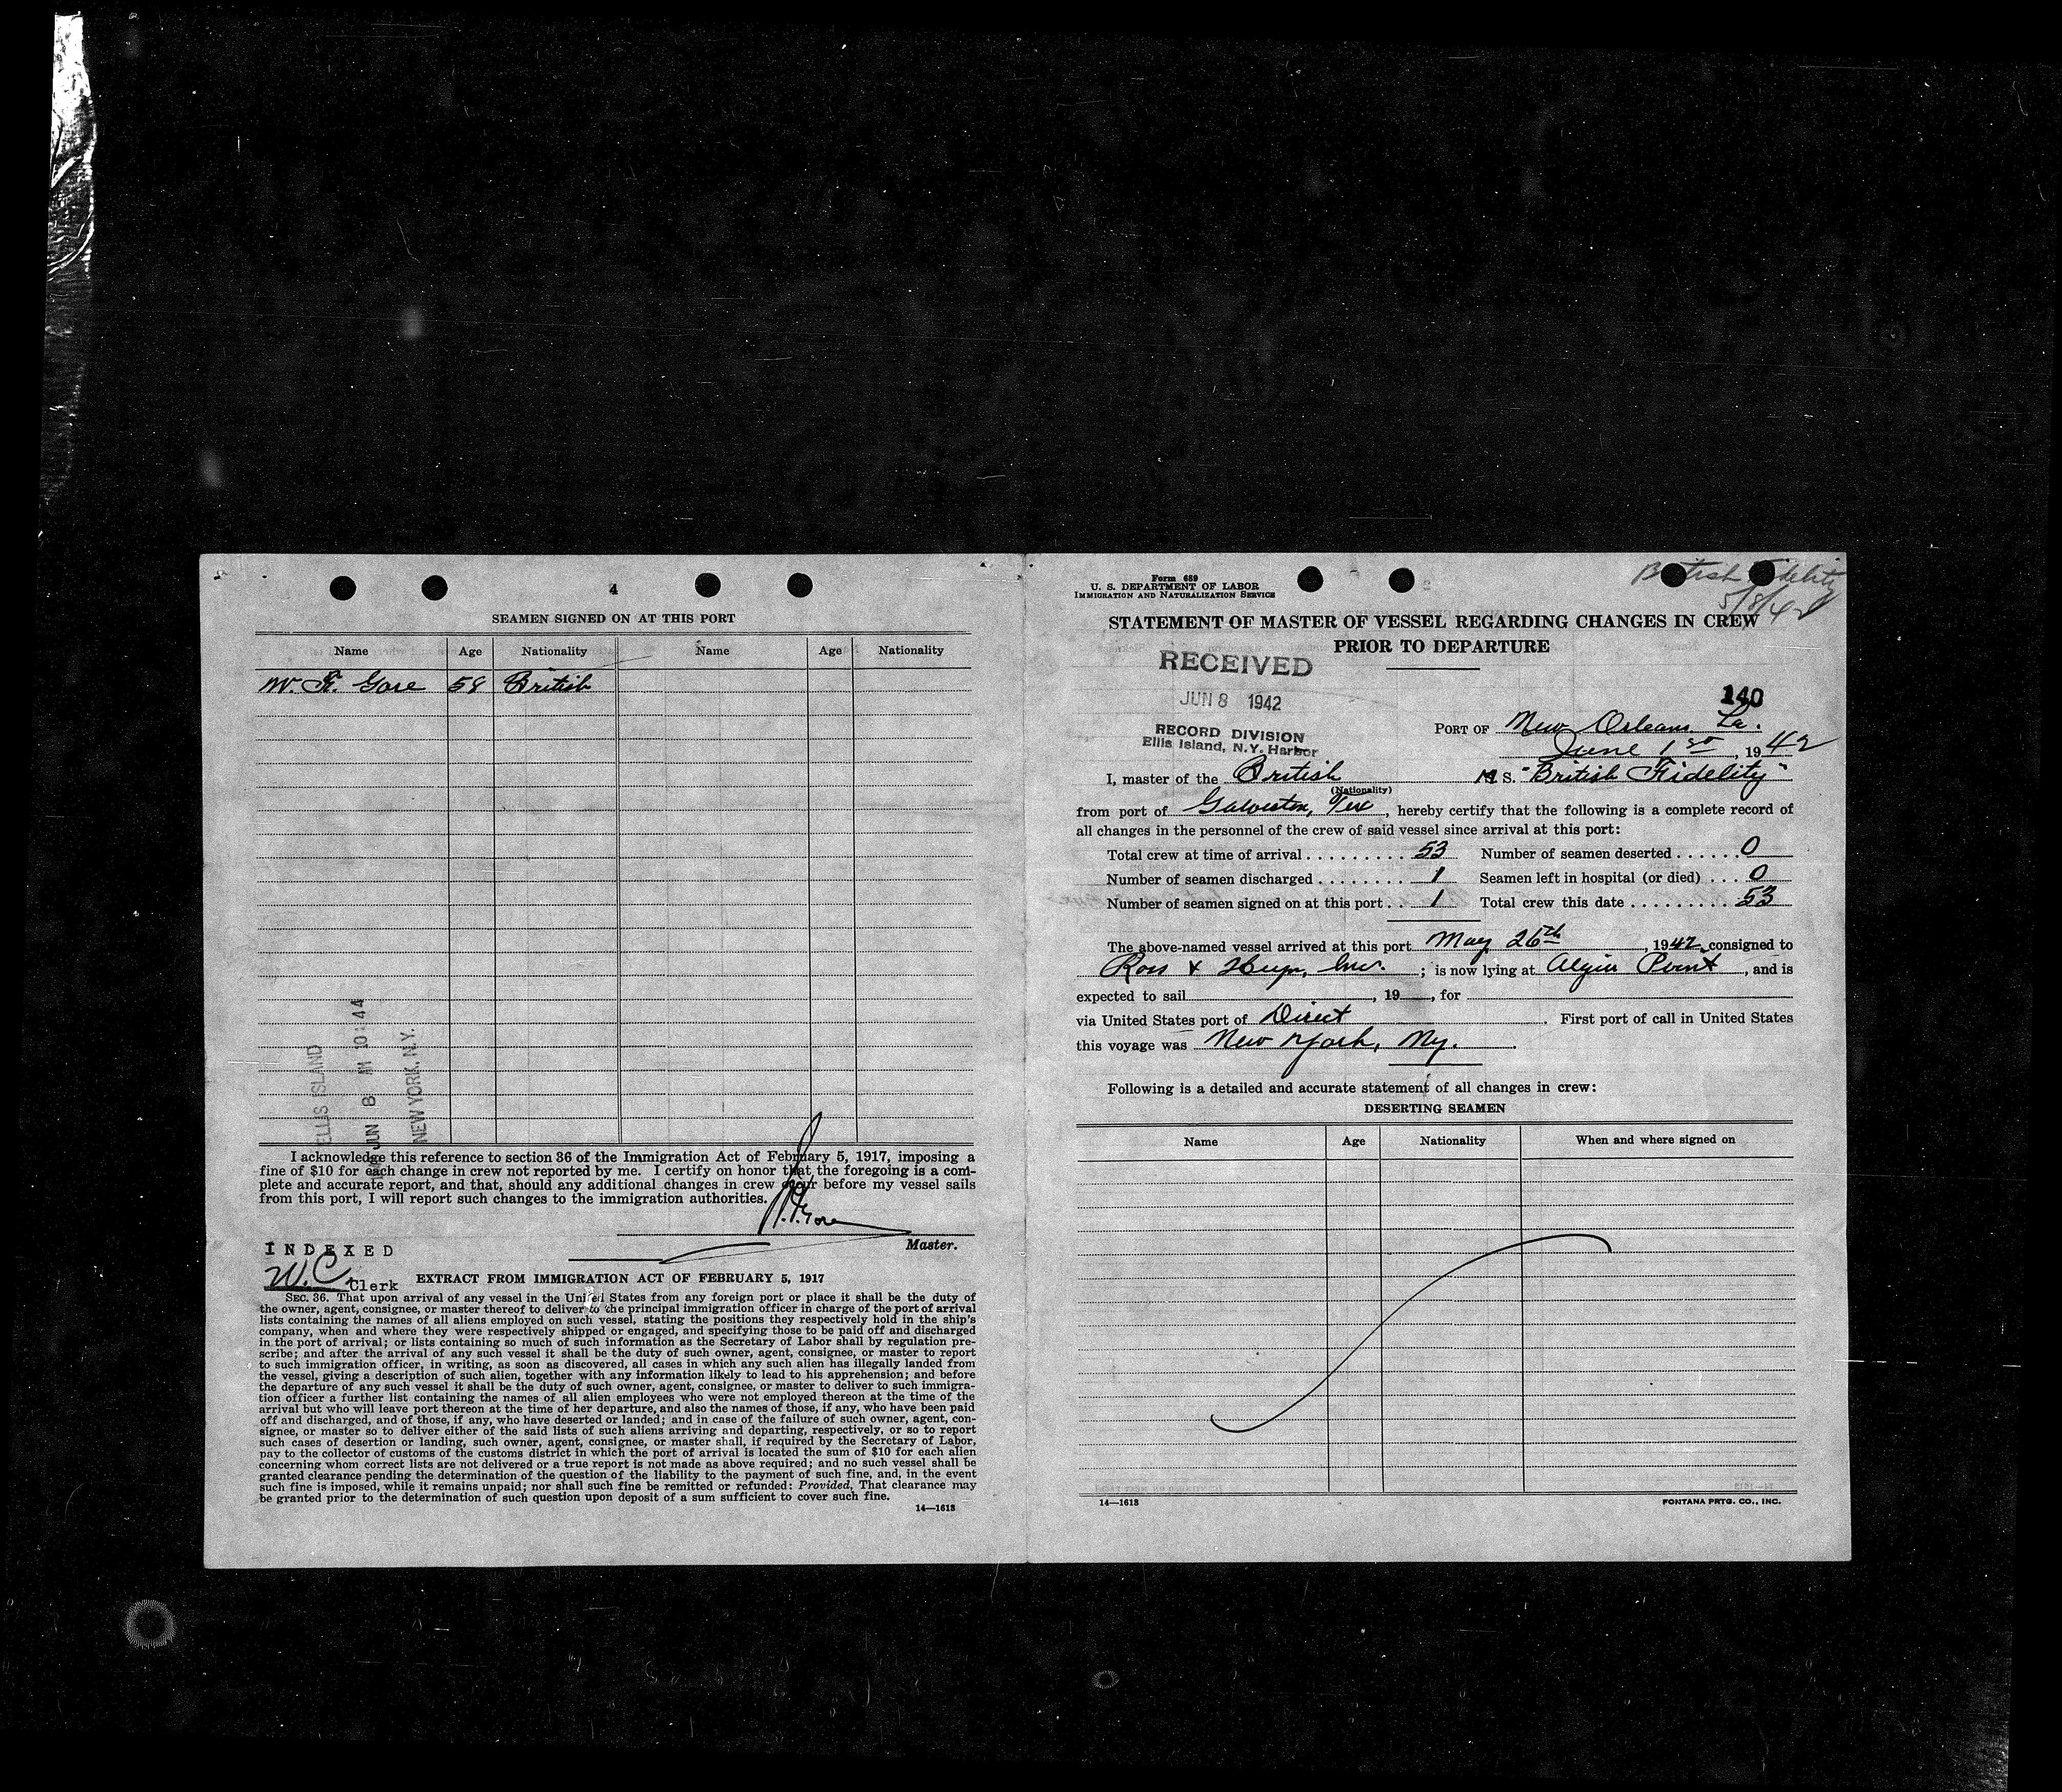 4
SEAMEN SIGNED ON AT THIS PORT
Name Age Nationality Name Age Nationality
W. F. Gore 58 British
ELLIS ISLAND
JUN 8 AM 10:44
NEW YORK, N.Y.
I acknowledge this reference to section 36 of the Immigration Act of February 5, 1917, imposing a
fine of $10 for each change in crew not reported by me. I certify on honor that the foregoing is a com-
plete and accurate report, and that, should any additional changes in crew occur before my vessel sails
from this port, I will report such changes to the immigration authorities.
Gore
Master.
INDEXED
W.C. Clerk
EXTRACT FROM IMMIGRATION ACT OF FEBRUARY 5, 1917
SEC. 36. That upon arrival of any vessel in the United States from any foreign port or place it shall be the duty of
the owner, agent, consignee, or master thereof to deliver to the principal immigration officer in charge of the port of arrival
lists containing the names of all aliens employed on such vessel, stating the positions they respectively hold in the ship's
company, when and where they were respectively shipped or engaged, and specifying those to be paid off and discharged
in the port of arrival; or lists containing so much of such information as the Secretary of Labor shall by regulation pre-
scribe; and after the arrival of any such vessel it shall be the duty of such owner, agent, consignee, or master to report
to such immigration officer, in writing, as soon as discovered, all cases in which any such alien has illegally landed from
the vessel, giving a description of such alien, together with any information likely to lead to his apprehension; and before
the departure of any such vessel it shall be the duty of such owner, agent, consignee, or master to deliver to such immigra-
tion officer a further list containing the names of all alien employees who were not employed thereon at the time of the
arrival but who will leave port thereon at the time of her departure, and also the names of those, if any, who have been paid
off and discharged, and of those, if any, who have deserted or landed; and in case of the failure of such owner, agent, con-
signee, or master so to deliver either of the said lists of such aliens arriving and departing, respectively, or so to report
such cases of desertion or landing, such owner, agent, consignee, or master shall, if required by the Secretary of Labor,
pay to the collector of customs of the customs district in which the port of arrival is located the sum of $10 for each alien
concerning whom correct lists are not delivered or a true report is not made as above required; and no such vessel shall be
granted clearance pending the determination of the question of the liability to the payment of such fine, and, in the event
such fine is imposed, while it remains unpaid; nor shall such fine be remitted or refunded: Provided, That clearance may
be granted prior to the determination of such question upon deposit of a sum sufficient to cover such fine.
14—1613
Form 689
U. S. DEPARTMENT OF LABOR
IMMIGRATION AND NATURALIZATION SERVICE
British Fidelity
5/8/42
STATEMENT OF MASTER OF VESSEL REGARDING CHANGES IN CREW
PRIOR TO DEPARTURE
RECEIVED
JUN 8 1942
RECORD DIVISION
Ellis Island, N.Y. Harbor
140
PORT OF New Orleans, La.
June 1st, 1942
I, master of the British M S. "British Fidelity"
(Nationality)
from port of Galveston, Tex, hereby certify that the following is a complete record of
all changes in the personnel of the crew of said vessel since arrival at this port:
Total crew at time of arrival . . . . . . . . . 53 Number of seamen deserted . . . . . . 0
Number of seamen discharged . . . . . . . . 1 Seamen left in hospital (or died) . . . 0
Number of seamen signed on at this port . . 1 Total crew this date . . . . . . . . . 53
The above-named vessel arrived at this port May 26th, 1942, consigned to
Ross & Heyn, Inc. ; is now lying at Algiers Point, and is
expected to sail , 19 , for
via United States port of Direct. First port of call in United States
this voyage was New York, Ny.
Following is a detailed and accurate statement of all changes in crew:
DESERTING SEAMEN
Name Age Nationality When and where signed on
14—1613
FONTANA PRTG. CO., INC.